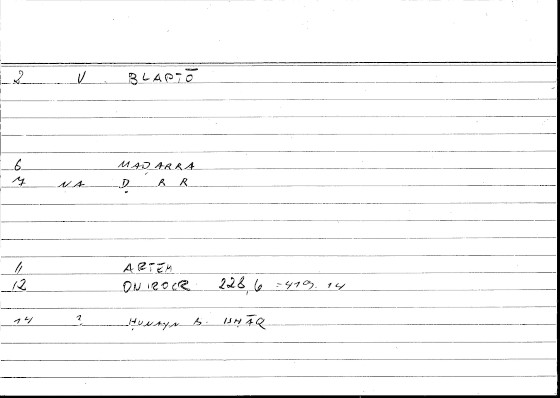 2 V BLAPTŌ
6 MAḌARRA
7 NA Ḍ R R
11 ARTEM
12 ONIROCR 228,6 = 419.14
14 ? ḤUNAYN B. ISḤĀQ